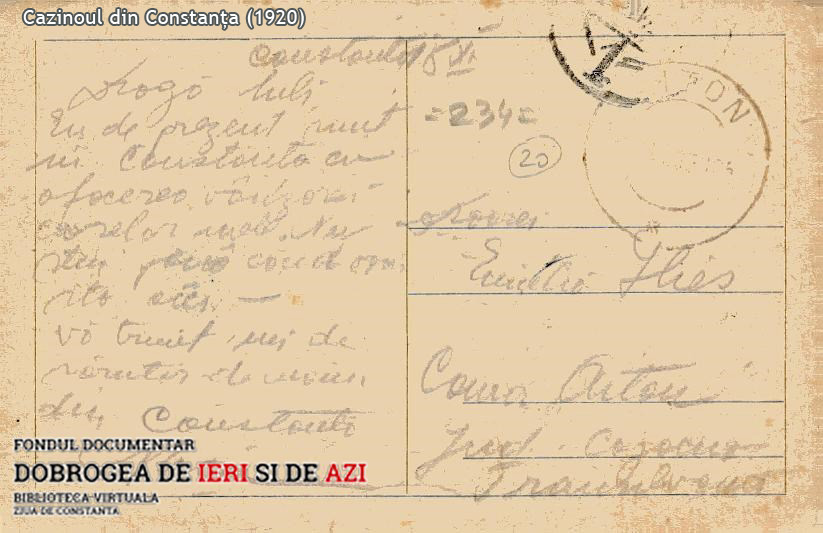 Cazinoul din Constanța (1920)
Constanța 15 XI
Dragă Luli
Eu de prezent sunt
în Constanta cu
afacerea vânzării
Nu
știu până când
sta aici. —
Vă trimit mii de
sărutări de mâini
din Constanta
=234=
20
AITON
T
Emilia Ilieș
Comuna Aiton
Jud. Cojocna
Transilvania
FONDUL DOCUMENTAR
DOBROGEA DE IERI SI DE AZI
BIBLIOTECA VIRTUALA
ZIUA DE CONSTANTA